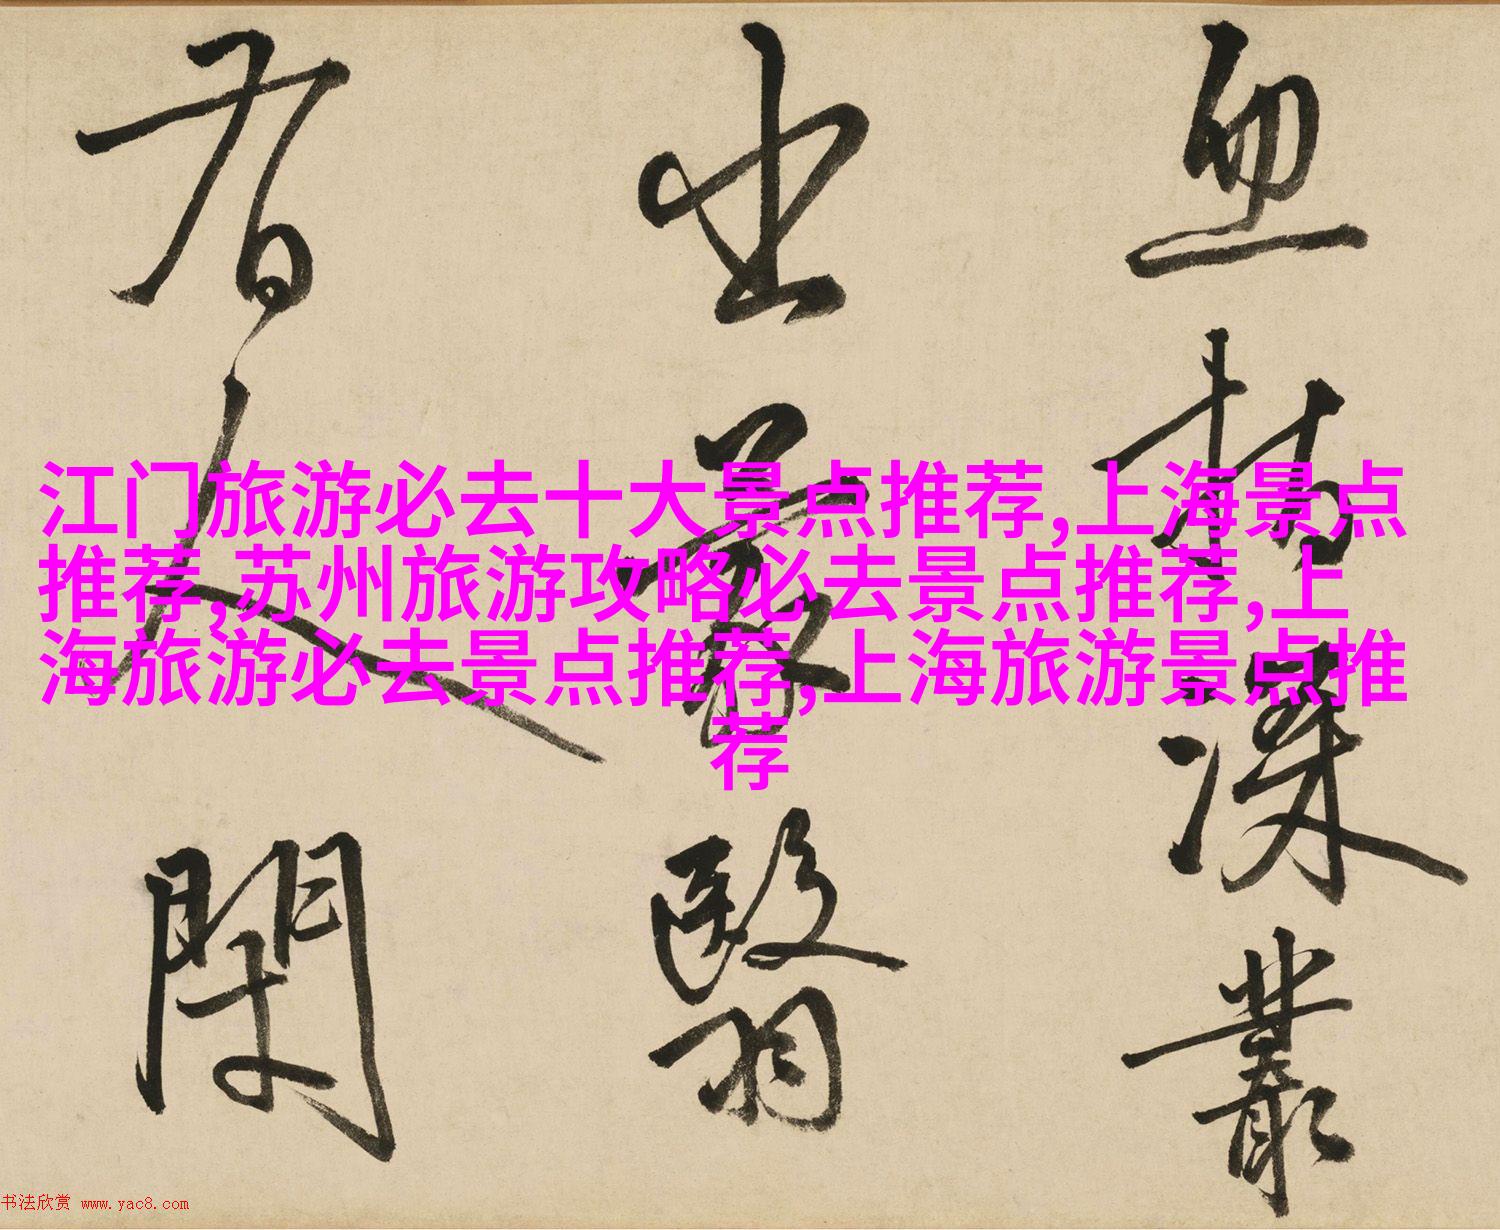 江门旅游必去十大景点推荐,上海景点
推荐,苏州旅游攻略必去景点推荐,上
海旅游必去景点推荐,上海旅游景点推
荐
深叢
翳
人閑
书法欣赏 www.yac8.com